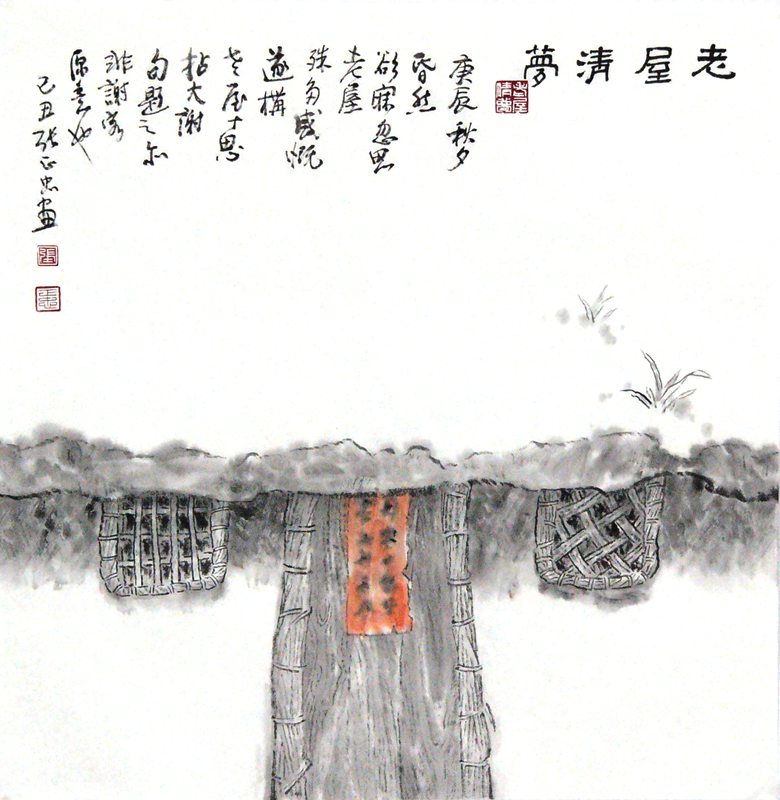 老屋清夢
庚辰秋夕
昏然
欲寐忽思
老屋
殊多感慨
遂構
老屋十思
拈大謝
句題之尔
非謝家
原意也
己丑張正忠畫